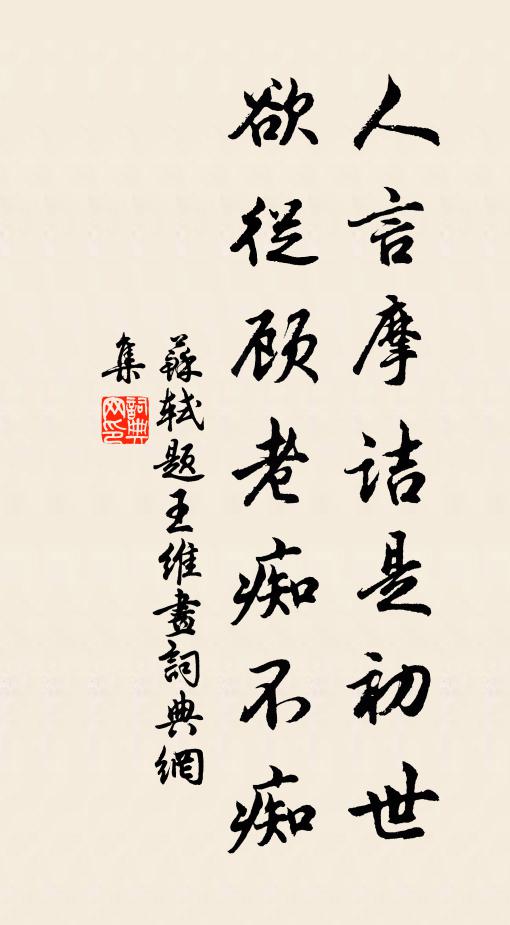 人言摩诘是初世
欲從顾老痴不痴
蘇軾題王維畫詞典網
集
詞典
网印